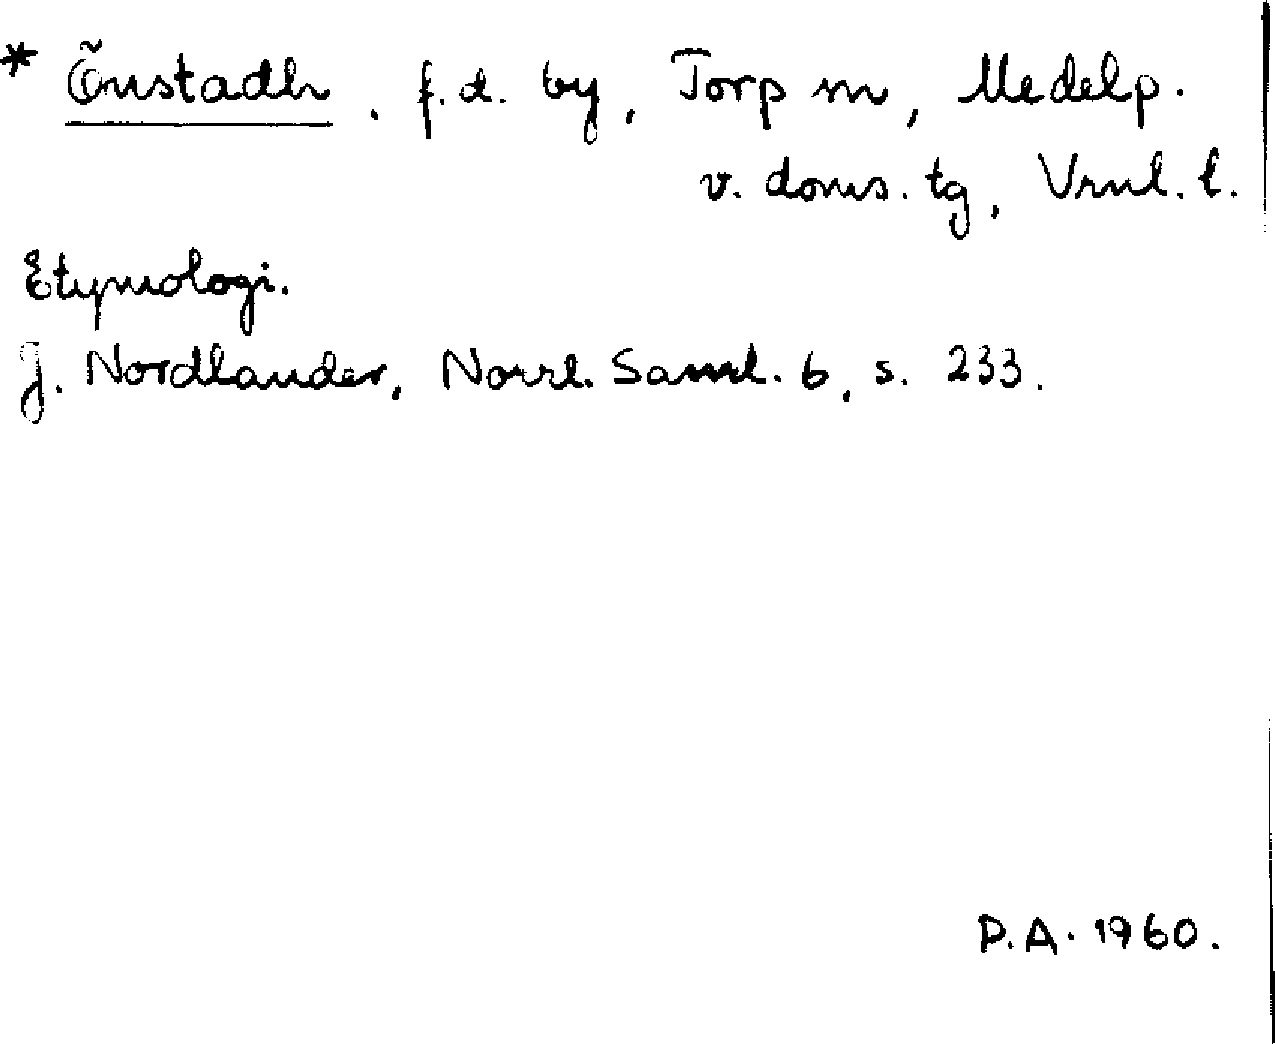 * Õnstadh, f.d. by, Torp sn, Medelp.
v. doms. tg, Vrnl. l.
Etymologi.
J. Nordlander, Norrl. Saml. 6, s. 233.
P.A. 1960.